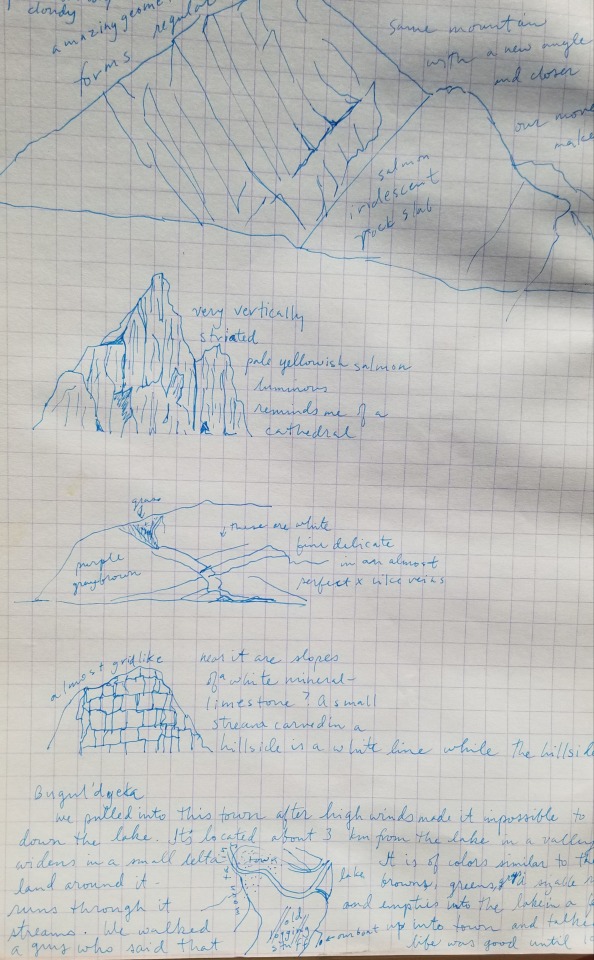 cloudy
amazing geome
regular
forms
same mountain
with a new angle
and closer
our move
make
salmon
iridescent
rock slab
very vertically
striated
pale yellowish salmon
luminous
reminds me of a
cathedral
grass
these are white
fine delicate
in an almost
perfect x like veins
purple
gray brown
almost gridlike
near it are slopes
of a white mineral-
limestone? A small
stream carved in a
hillside is a white line while the hillside
Bugul'deyka
we pulled into this town after high winds made it impossible to
down the lake. It's located about 3 km from the lake in a valley
widens in a small delta
town
It is of colors similar to the
land around it -
lake
browns, greens,
runs through it
and empties into the lake in a
streams. We walked
old
logging
stuff
our boat
up into town and talked
a guy who said that
life was good until 19